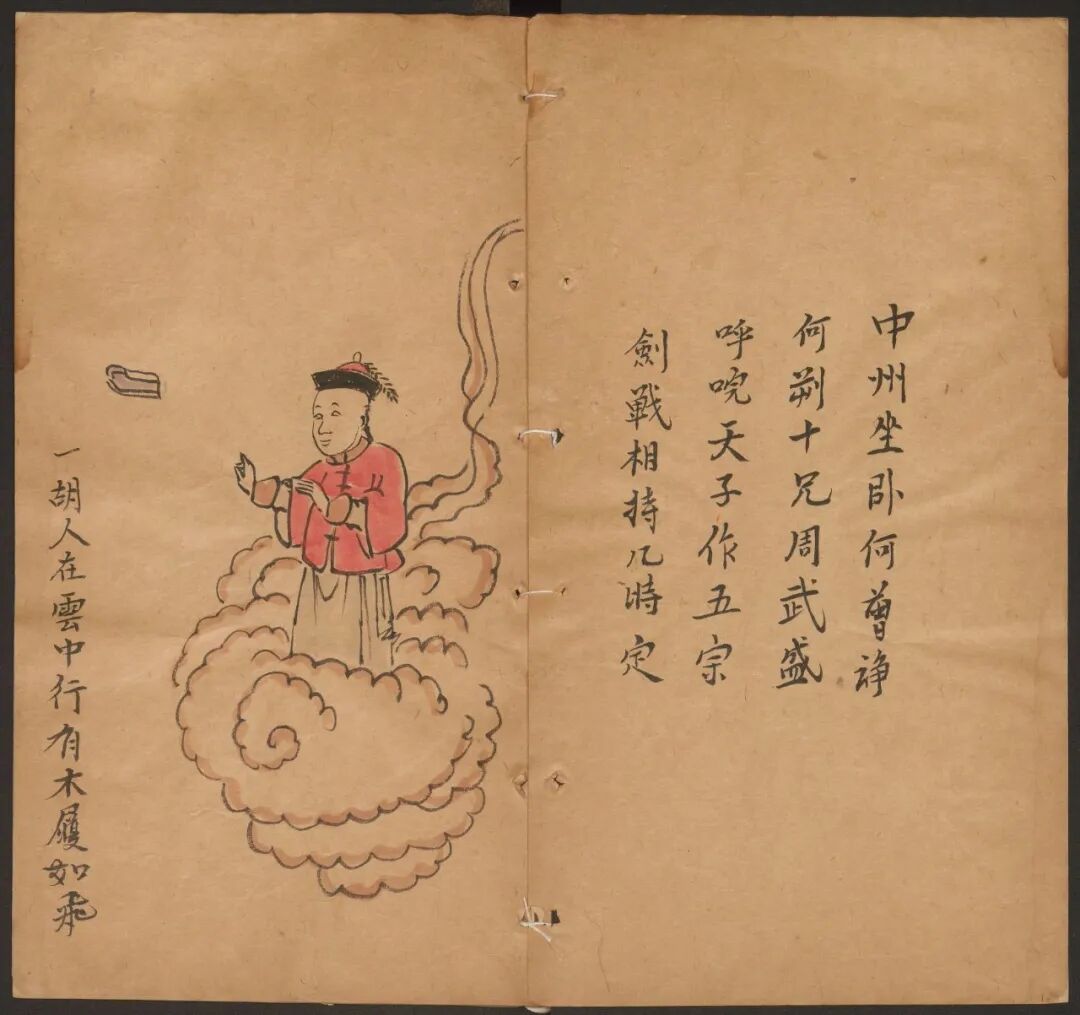 中州坐卧何曽諍
何荆十兄周武盛
呼唍天子作五宗
劍戰相持几時定
一胡人在雲中行有木履如飛